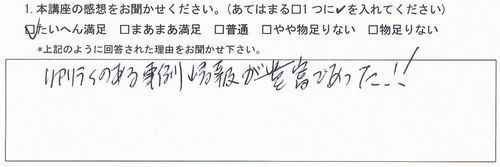 1.本講座の感想をお聞かせください。(あてはまる□1つに✓を入れてください)
☑たいへん満足 □まあまあ満足 □普通 □やや物足りない □物足りない
*上記のように回答された理由をお聞かせ下さい。
リアリティのある事例情報が豊富であった!!